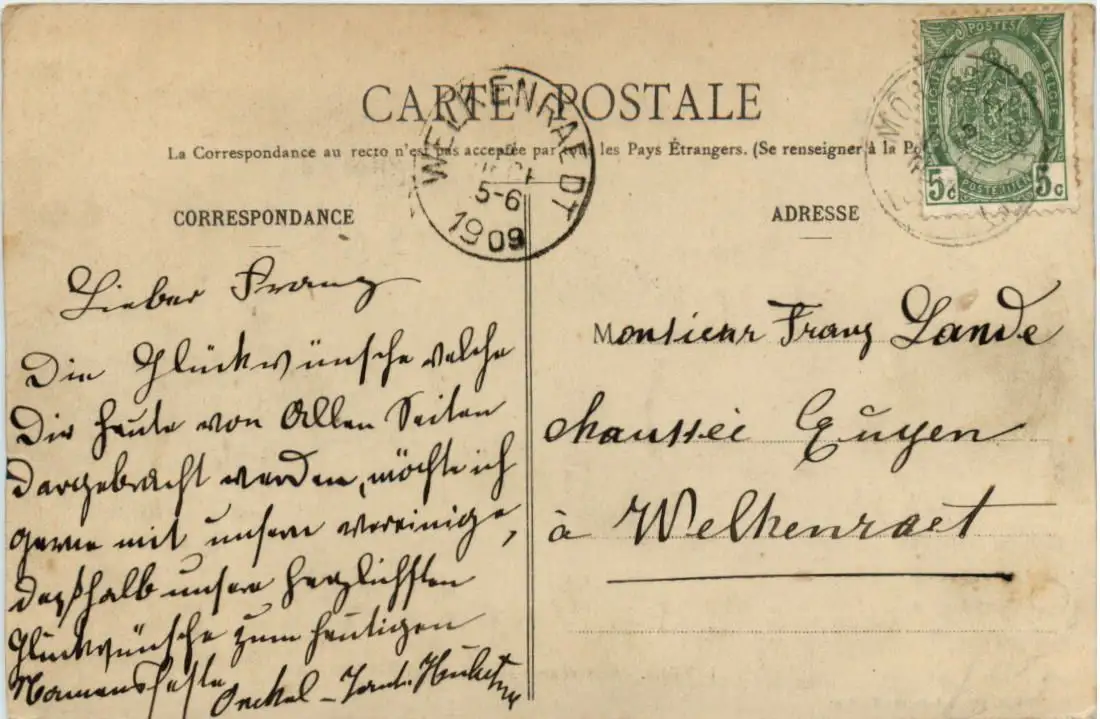 CARTE POSTALE
La Correspondance au recto n'est pas acceptée par tous les Pays Étrangers. (Se renseigner à la Po
WELKENRAEDT
5-6
1909
POSTES
BELGIQUE BELGIË
POSTERIJEN
5c 5c
CORRESPONDANCE
Lieber Franz
Die Glückwünsche welche
Dir heute von Allen Seiten
dargebracht werden, möchte ich
gerne mit unsern vereinige,
deßhalb unsere herzlichsten
Glückwünsche zum heutigen
Namensfeste
Onckel - Tant.
ADRESSE
Monsieur Franz Lande
chaussée Eupen
à Welkenraet